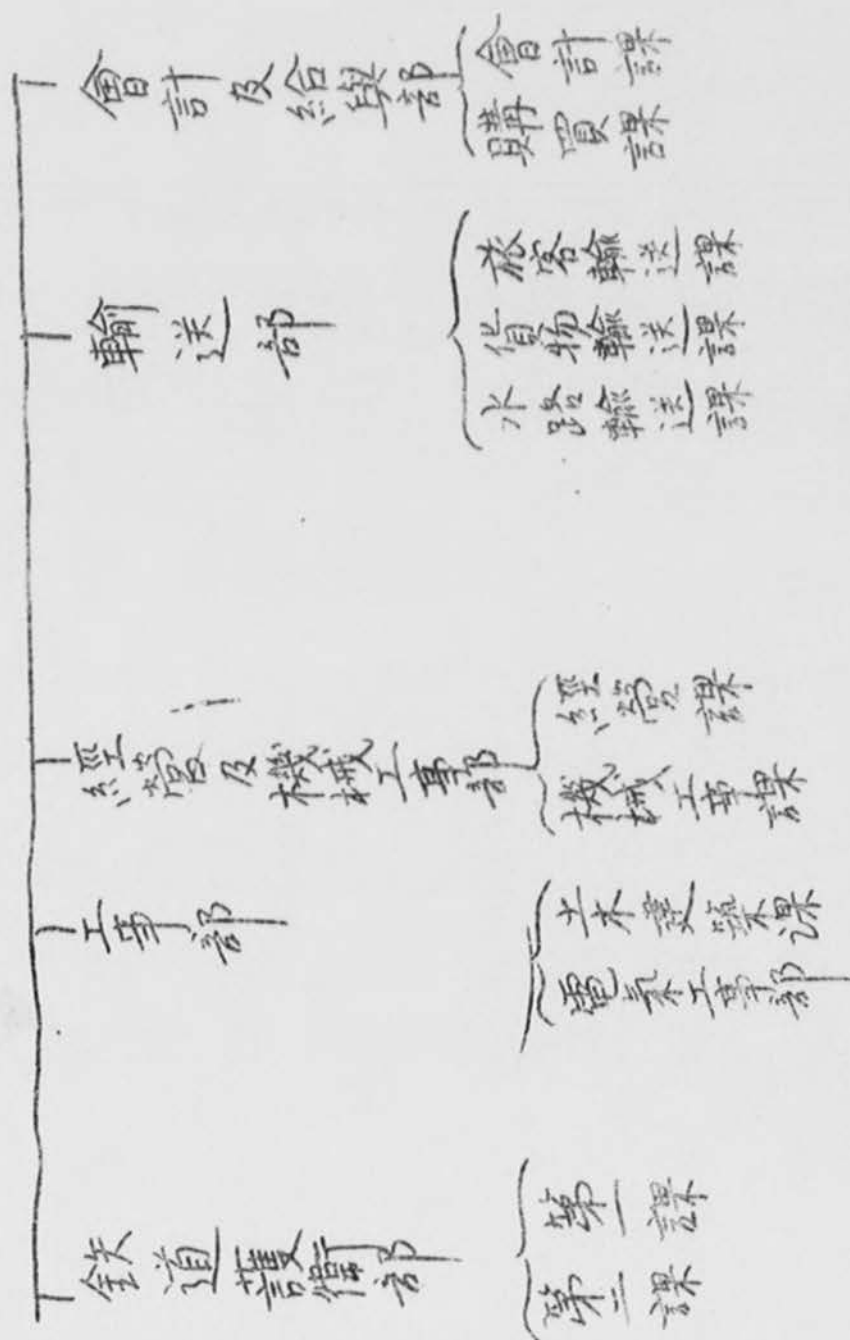 會計及給與部
會計課
購買課
輸送部
旅客輸送課
貨物輸送課
水路輸送課
經營及機械工事部
經營課
機械工事課
工事部
土木建築課
電氣工事部
鉄道護衛部
第一課
第二課